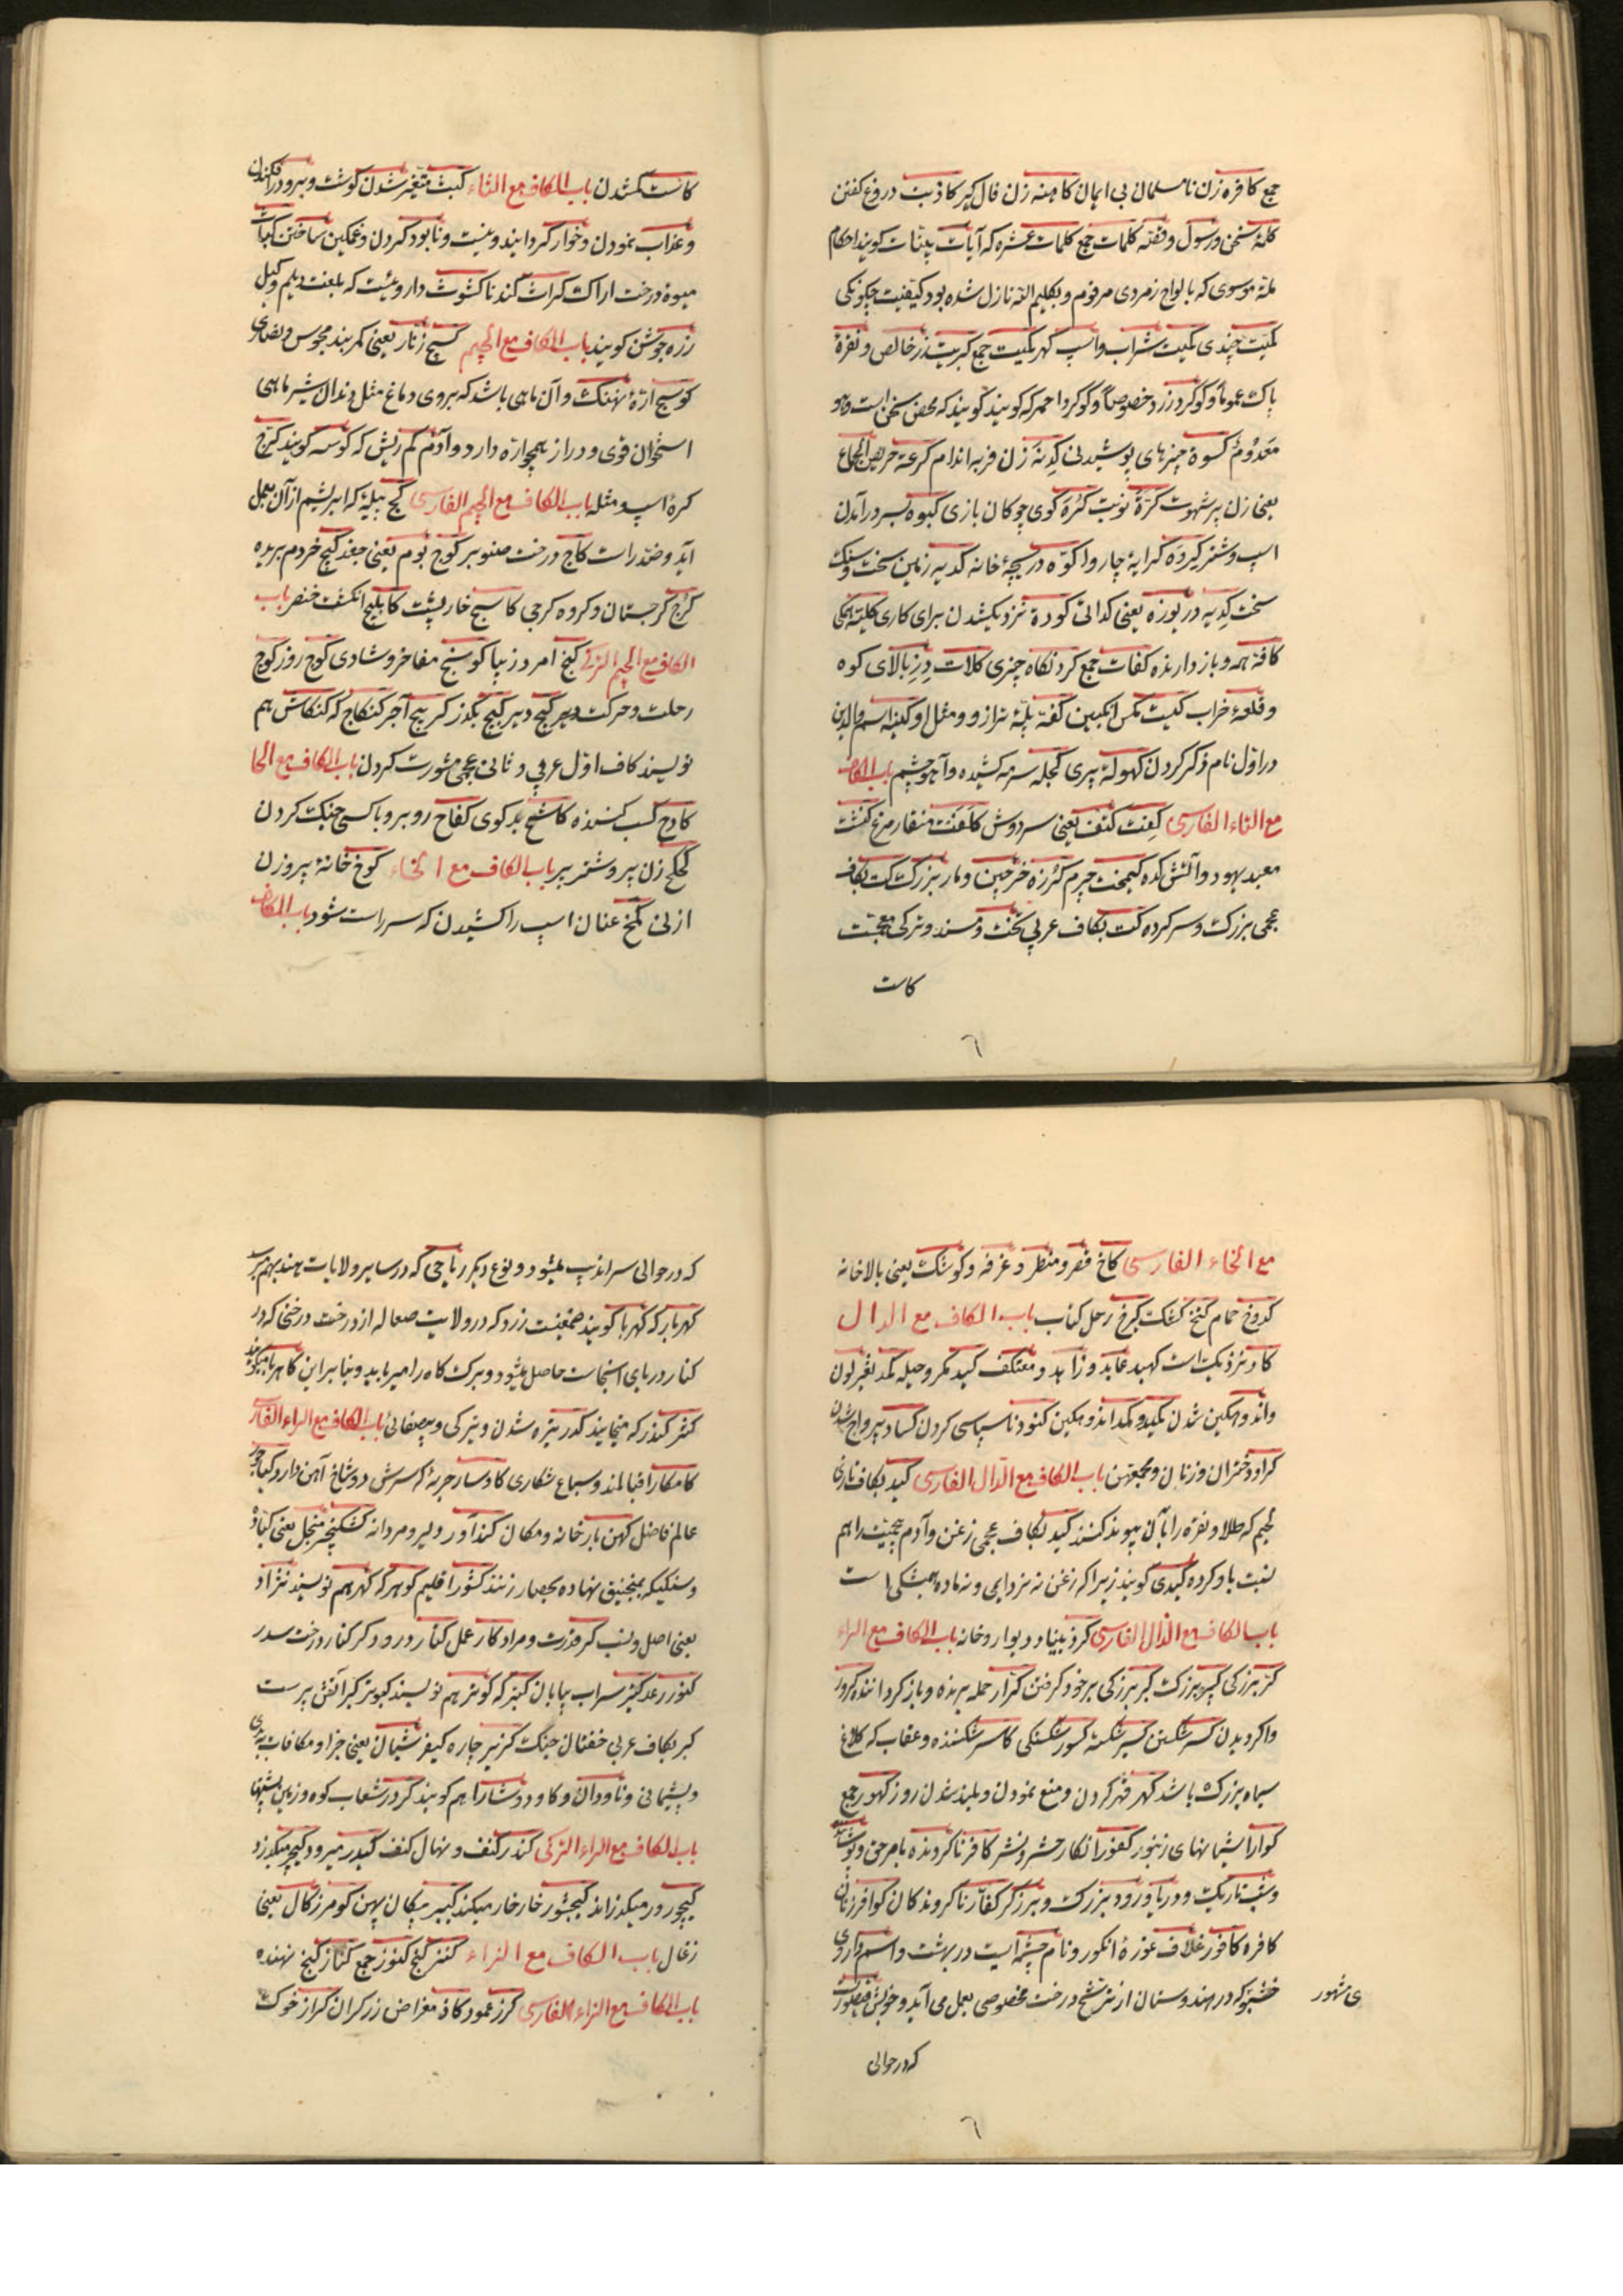 جمع کافره زن نامسلمان بی ایمان کاهنه زن فال کیر کاذبت دروغ کفتن
کلمة سخن ورسول وفقه کلمات جمع کلمات عشره که آیات بینات کویند احکام
ملة موسوی که بالواح زمردی مرقوم وبکلیم الله نازل شده بود کیفیت چکونکی
کمیت چندی کمیت شراب واسپ کهر کمیت جمع کبریت زر خالص ونقرهٔ
پاک عموماً وکوکرد زرد خصوصاً وکوکرد احمر که کویند کویند که محض سخن است وهو
معدوم کسوة چیزهای پوشیدنی کدنة زن فربه اندام کرعة حریص الجماع
یعنی زن پرشهوت کرة نوبت کرة کوی چوکان بازی کبوه بسر درآمدن
اسپ وشتر کیرده کرایهٔ چاروا کوّه دریچهٔ خانه کدیه زمین سخت وسنک
سخت کدیه دریوزه یعنی کدائی کودة نزدیکشدن برای کاری کلیته همکی
کافة همه وباز دارنده کفات جمع کردنکاه چیزی کلات دز بالای کوه
وقلعهٔ خراب کمیت مکس انکبین کفة پلهٔ ترازو ومثل او کنیه اسم والدین
در اول نام ذکر کردن کهولة پیری کحله سرمه کشیده وآهو چشم باب الکاف
مع التاء الفارسی کفت کتف یعنی سردوش کلفت منقار مرغ کنشت
معبد یهود وآتشکده کیمخت چرم کرزه خرچین ومار بزرک کت بکاف
عجمی بزرک وسرکرده کت بکاف عربی تخت ومسند وترکی معجبت
کاست
کاست کمشدن باب الکاف مع الثاء کبث متغیر شدن کوشت وبرو درافکندن
وعذاب نمودن وخوار کردانیدن ونیست ونابود کردن وغمکین ساختن کباث
میوهٔ درخت اراک کراث کندنا کشوث داروئیست که بلغت دیلم وکیل
زره جوشن کویند باب الکاف مع الجیم کسیج زنار یعنی کمربند مجوس ونصاری
کوسج ارهٔ نهنک وآن ماهی باشد که بروی دماغ مثل دندان شیرماهی
استخوان قوی ودراز همچو اره دارد وآدم کم ریش که کوسه کویند کرج
کرهٔ اسپ ومثله باب الکاف مع الجیم الفارسی کج پیله که ابریشم از آن بعمل
آید وضد راست کاج درخت صنوبر کوچ بوم یعنی جغد کیج خر دم بریده
کرج کرجستان وکروه کرجی کاسج خارپشت کابلج انکشت خنصر باب
الکاف مع الجیم الترکی کنج امرد زیبا کوسنج مفاخر وشادی کوج روز کوچ
رحلت وحرکت دیر کیج دیر کیج بکذر کرپیج آجر کنکاج که کنکاش هم
نویسند کاف اول عربی وثانی عجمی مشورت کردن باب الکاف مع الحا
کادح کسب کننده کاشح بدکوی کفاح روبرو با کسی جنک کردن
کحکح زن پیر وشتر پیر باب الکاف مع الخاء کوخ خانهٔ پیر وزن
ازلی کمخ عنان اسپ را کشیدن که سر راست شود باب الکاف
مع الخاء الفارسی کاخ قصر ومنظر وغرفه وکوشک یعنی بالاخانه
کدوخ حمام کنخ کشک کرخ رحل کتاب باب الکاف مع الدال
کاد نزدیک است کهید عابد وزاهد ومعتکف کید مکر وحیله کمد تغیر لون
واندوهکین شدن کمید وکمد اندوهکین کنود ناسپاسی کردن کساد بیرواج شدن
کراود دختران وزنان باب الکاف مع الدال الفارسی کبد بکاف تازی
لحیم که طلا ونقره را بآن پیوند کنند کید بکاف عجمی زغن وآدم بیحمیت را هم
نسبت باو کرده کیدی کویند زیرا که زغن نه نر دایمی ونه ماده همیشکی است
باب الکاف مع الذال الفارسی کرذ بنیاد دیوار وخانه باب الکاف مع الراء
کبر بزرکی کبیر بزرک کبر بزرکی برخود کرفتن کرار حمله برنده وباز کرداننده کرور
واکردیدن کسر شکستن کسیر شکسته کسور شکستکی کاسر شکننده وعقاب که کلاغ
سیاه بزرک باشد کهر قهر کردن ومنع نمودن وبلند شدن روز کهور جمع
کوار آشیانهای زنبور کفور انکار حشر ونشر کافر ناکرونده بامر حق وپوشنده
وشب تاریک ودریا ورود بزرک وبرزکر کفار ناکروندکان کوافر زنان
کافره کافور غلاف غورهٔ انکور ونام چشمه ایست در بهشت واسم داروی
خشبو که در هندوستان از ترشح درخت مخصوصی بعمل می آید وخوبش قیصور است
ی مشهور
که در حوالی
که در حوالی سراندیب میشود ونوع دیکر ریاحی که در سایر ولایات هند بهم میرسد
کهربار که کهربا کویند صمغیست زرد که در ولایت صعاله از درخت درختی که در
کنار دریای آنجاست حاصل میشود وبرک کاه را میرباید وبنابراین کاهربا میکویند
کدر تیره شدن وتیرکی وبیصفائی باب الکاف مع الراء الفارسی
کامکار اقبالمند وسباع شکاری کاوسار حربهٔ که سرش دو شاخ آهن دارد
عالم فاضل کهن بار خانه ومکان کندآور دلیر ومردانه کشکنجیر منجل یعنی
وسنکیکه بمنجنیق نهاده بحصار زنند کشور اقلیم کوهر که کهر هم نویسند نژاد
یعنی اصل ونسب کر قدرت ومراد کار عمل کنار درود کر کنار درخت سدر
کنور رعد کبیر سراب بیابان کبتر که کوتر هم نویسند کبوتر کبر آتش پرست
کبر بکاف عربی خفتان جنک کزیر چاره کیفر شیان یعنی جزا ومکافات بدی
وپشیمانی وناودان وکاو دوشا را هم کویند کردر شعاب کوه وزمین پشتها
باب الکاف مع الراء الترکی کندر کنف ونهال کنف کیدر میرود کیچر میکذرد
کیچورور میکذراند کیجشور خار خار میکند کیبیر پیکان پهن کومر زکال یعنی
زغال باب الکاف مع الزاء کنز کنج کنوز جمع کناز کنج نهنده
باب الکاف مع الزاء الفارسی کرز عمود کاز مقراض زرکران کراز خوک